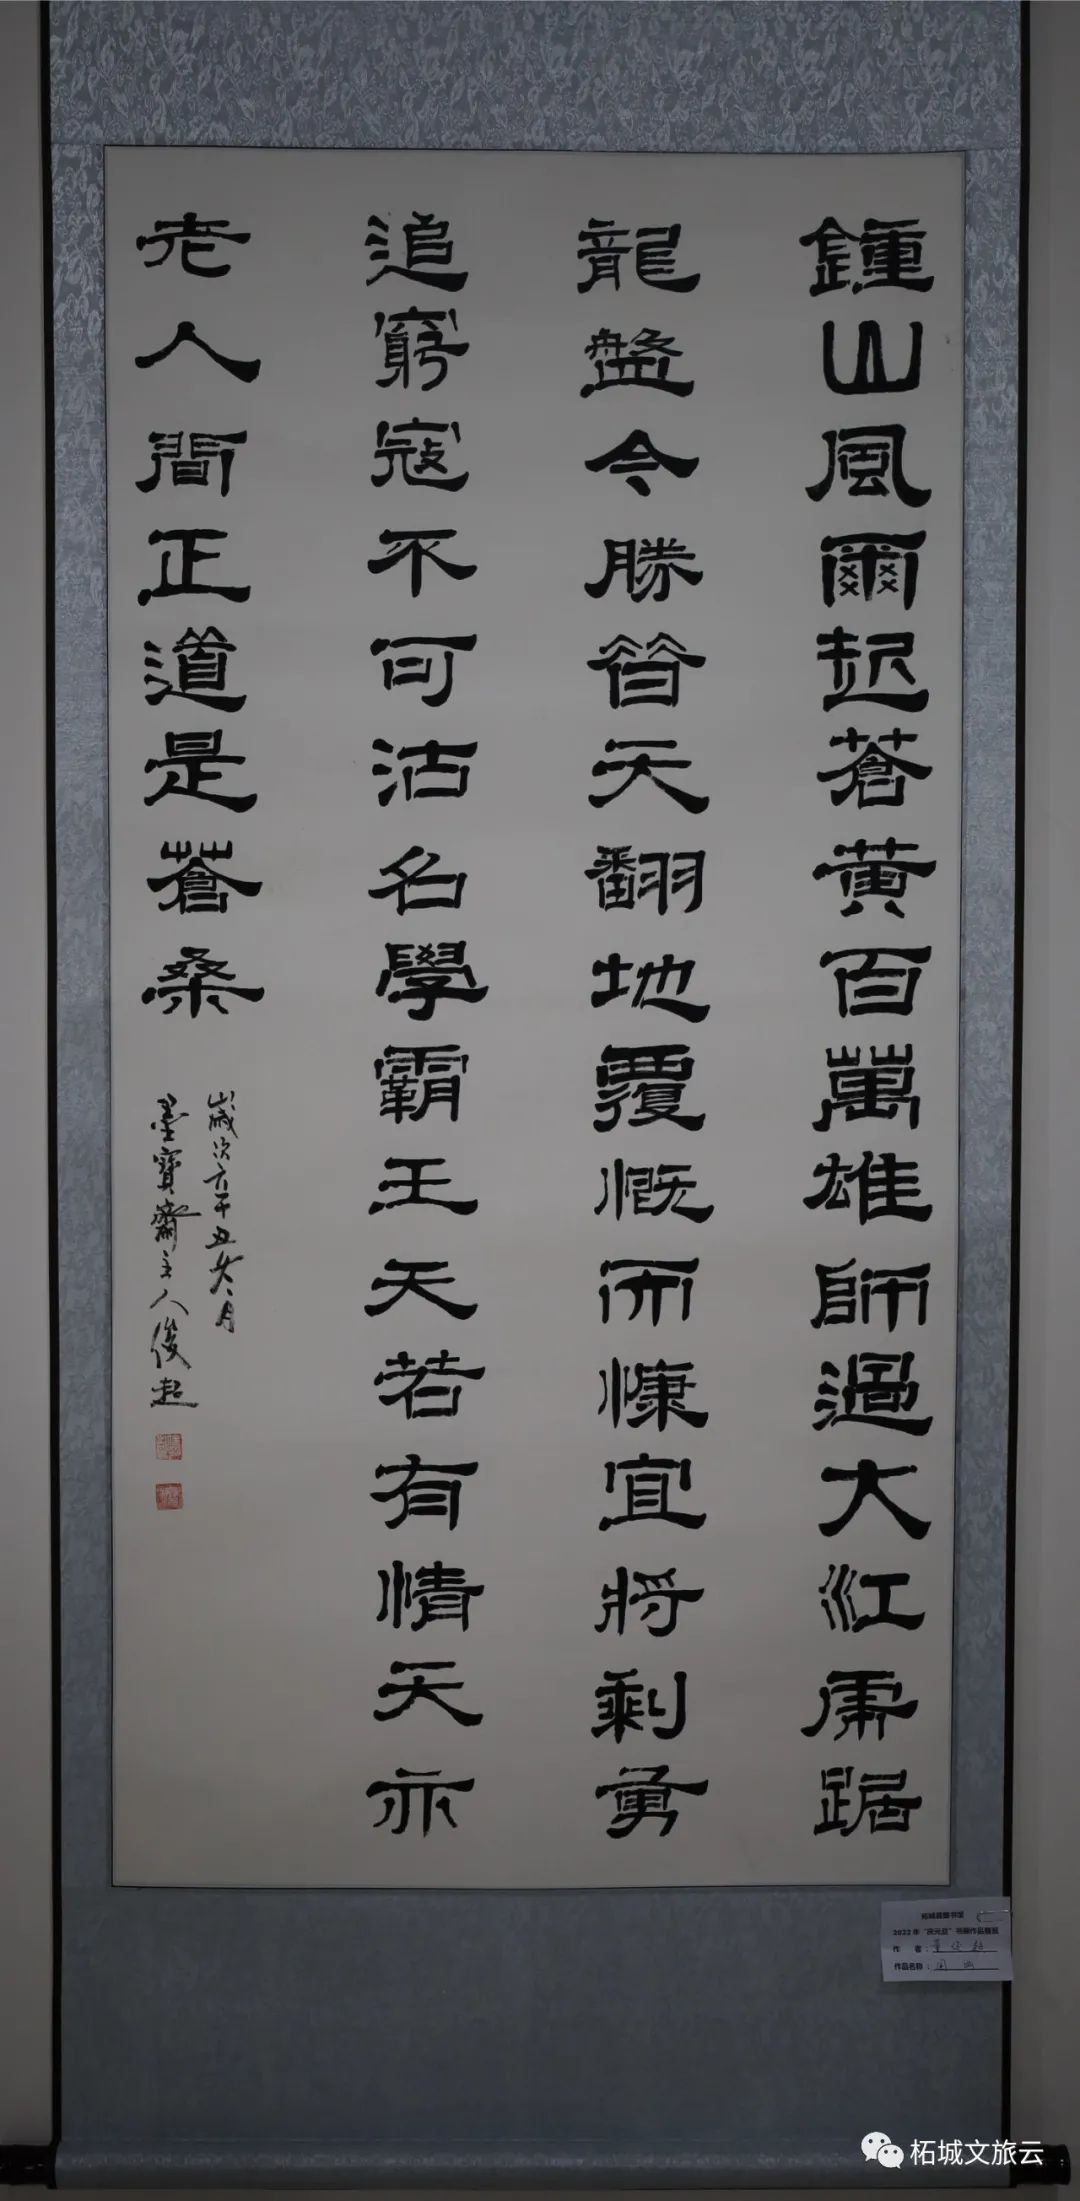 鍾山風爾起蒼黄百萬雄師過大江虎踞
龍盤令勝昔天翻地覆慨而慷宜將剩勇
追窮寇不可沽名學霸王天若有情天亦
老人間正道是蒼桑
歲次辛丑冬月
墨寶齋主人俊超
柘城县图书馆
2022年“庆元旦”书画作品展览
作 者：
作品名称：
柘城文旅云